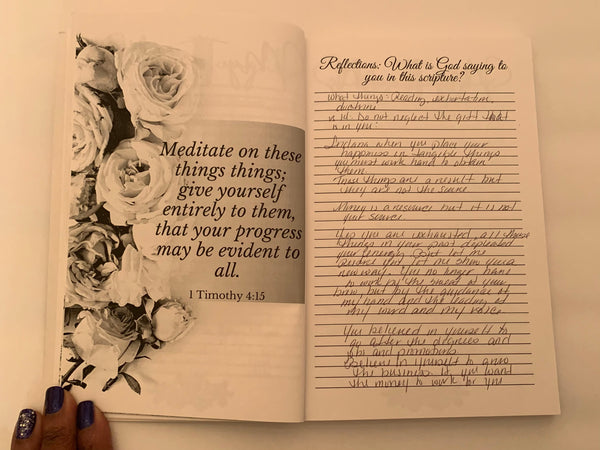 Meditate on these
things things;
give yourself
entirely to them,
that your progress
may be evident to
all.
1 Timothy 4:15
Reflections: What is God saying to
you in this scripture?
What things: Reading, exhortation,
doctrine
v 14: Do not neglect the gift that
is in you:
when you place your
happiness in tangible things
you must work hard to obtain
them.
These things are a result but
they are not the source
Money is a resource but it is not
your source.
Yes you are exhausted, all those
things in your past depleated
your energy. But let me
you, let me show you a
new way. You no longer have
to work by the sweat of your
brow, but by the guidance of
my hand and the leading of
my word and my voice.
You believed in yourself to
go after the degrees and
jobs and promotions
Believe in yourself to grow
the business if you want
the money to work for you